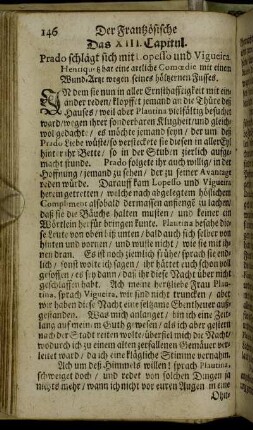 146 Der Frantzösische
Das XIII. Capitul.
Prado schlägt sich mit Lopello und Vigueira.
Henriquez hat eine artliche Comœdie mit einem
Wund-Artzt wegen seines höltzernen Fusses.
IN dem sie nun in aller Ernsthafftigkeit mit ein-
ander reden/ klopffet jemand an die Thüre deß
Hauses/ weil aber Plautina vielfältig besuchet
ward/ wegen ihrer sonderbaren Klugheit/ und gleich-
wol gedacht/ es möchte jemand seyn/ der um deß
Prado Liebe wüste/ so versteckte sie diesen in aller Eyl
hinter ihr Bette/ so in der Stuben zierlich auffge-
macht stunde. Prado folgete ihr auch willig/ in der
Hoffnung/ jemand zu sehen/ der zu seiner Avantage
reden würde. Darauff kam Lopello und Vigueira
herein getretten/ welche nach abgelegtem höflichen
Compliment alsobald dermassen anfiengē zu lachen/
daß sie die Bäuche halten musten/ und keiner ein
Wörtlein herfür bringen kunte. Plautina besahe die-
se Leute von oben biß unten/ und besahe sich selber von
hinten und vornen/ und wuste nicht/ wie sie mit ih-
nen dran. Es ist noch ziemlich frühe/ sprach sie end-
lich/ sonst wolte ich sagen/ ihr hättet euch schon voll
gesoffen/ es sey dann/ daß ihr diese Nacht über nicht
geschlaffen habt. Ach meine hertzliebe Frau Plau-
tina, sprach Vigueira, wir sind nicht truncken/ aber
wir haben diese Nacht eine seltzame Ebentheuer auß-
gestanden. Was mich anlanget/ bin ich eine Zeit-
lang auf meinem Guth gewesen/ als ich aber gestern
nach der Stadt reiten wolte/ überfiel mich die Nacht/
wodurch ich zu einem alten zerfallenen Gemäuer ver-
leitet ward/ da ich eine klägliche Stimme vernahm.
Ach um deß Himmels willen! sprach Plautina,
schweiget doch/ und redet von solchen Dingen ja
nichts mehr/ wann ich nicht vor euren Augen in eine